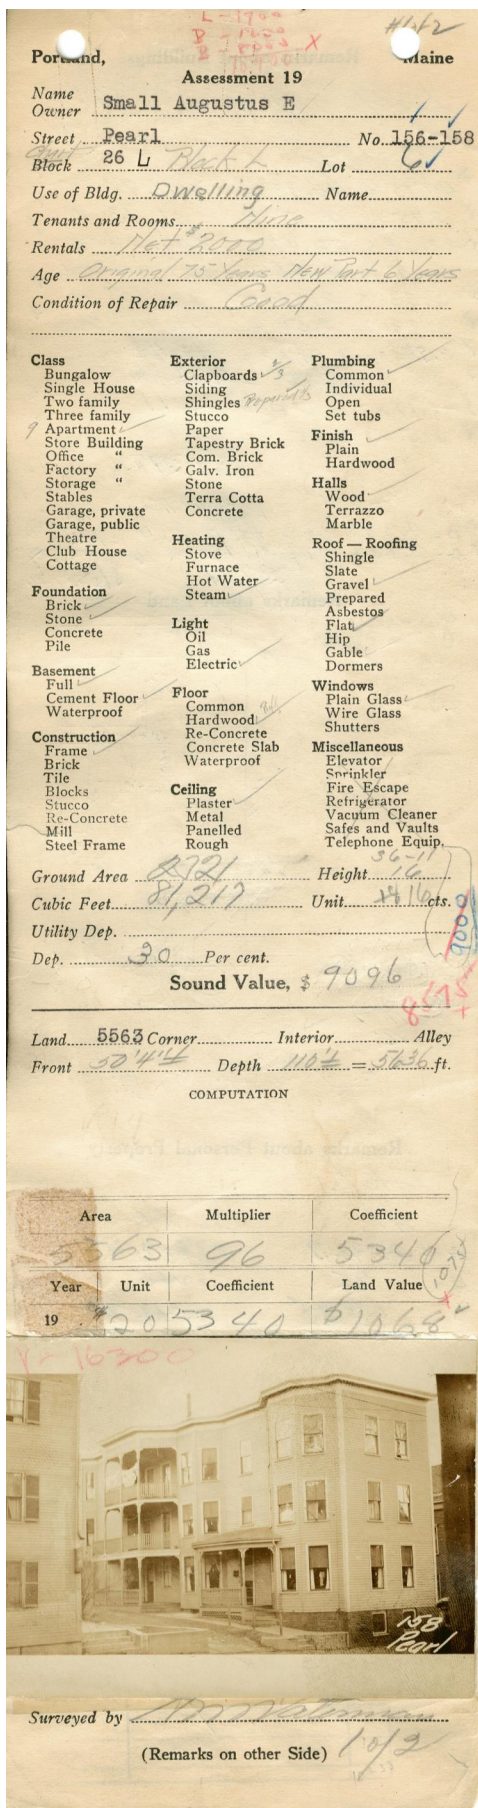 L-1700
B-8000 X
#1 of 2
Portland, Maine
Assessment 19
Name
Owner Small Augustus E
Street Pearl No. 156-158
Block 26 L Block L Lot 6
Use of Bldg. Dwelling Name
Tenants and Rooms Nine
Rentals Net $2000
Age Original 75 Years New Part 6 Years
Condition of Repair Good
Class
Bungalow
Single House
Two family
Three family
9 Apartment ✓
Store Building
Office "
Factory "
Storage "
Stables
Garage, private
Garage, public
Theatre
Club House
Cottage
Foundation
Brick ✓
Stone ✓
Concrete
Pile
Basement
Full ✓
Cement Floor ✓
Waterproof
Construction
Frame ✓
Brick
Tile
Blocks
Stucco
Re-Concrete
Mill
Steel Frame
Exterior
Clapboards ✓ 2/3
Siding
Shingles
Stucco
Paper
Tapestry Brick
Com. Brick
Galv. Iron
Stone
Terra Cotta
Concrete
Heating
Stove
Furnace
Hot Water
Steam ✓
Light
Oil
Gas
Electric ✓
Floor
Common
Hardwood ✓
Re-Concrete
Concrete Slab
Waterproof
Ceiling
Plaster ✓
Metal
Panelled
Rough
Plumbing
Common ✓
Individual
Open
Set tubs
Finish ✓
Plain
Hardwood
Halls
Wood ✓
Terrazzo
Marble
Roof — Roofing
Shingle
Slate
Gravel ✓
Prepared
Asbestos
Flat ✓
Hip
Gable ✓
Dormers
Windows
Plain Glass ✓
Wire Glass
Shutters
Miscellaneous
Elevator
Sprinkler
Fire Escape
Refrigerator
Vacuum Cleaner
Safes and Vaults
Telephone Equip.
36-11
Ground Area 2721 Height 16
Cubic Feet 81,217 Unit 16 cts.
9000
Utility Dep.
Dep. 30 Per cent.
Sound Value, $ 9096
8575
Land 5563 Corner Interior Alley
Front 50'4"± Depth 110'± = 5636 ft.
COMPUTATION
Area Multiplier Coefficient
5563 96 5340
1075
Year Unit Coefficient Land Value
19 $20 5340 $1068
V-16300
158
Pearl
Surveyed by
(Remarks on other Side) 1 of 2